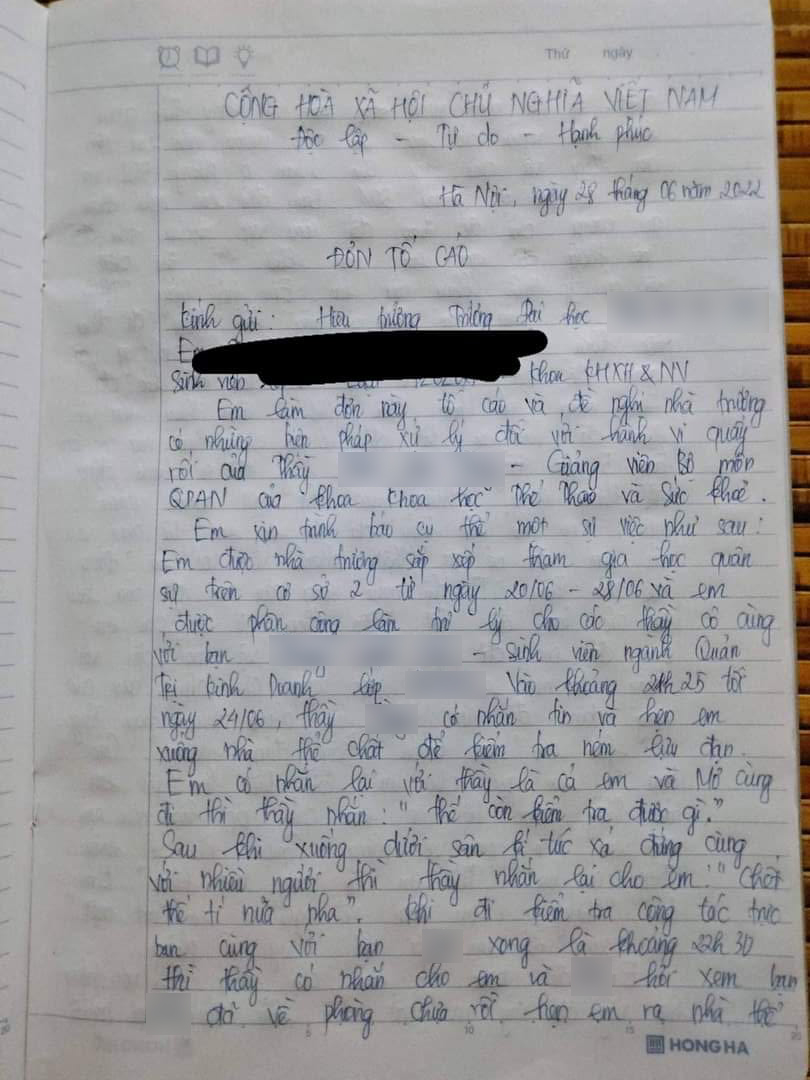 Thứ ngày
CỘNG HOÀ XÃ HỘI CHỦ NGHĨA VIỆT NAM
Độc lập - Tự do - Hạnh phúc
Hà Nội, ngày 28 tháng 06 năm 2022
ĐƠN TỐ CÁO
Kính gửi: Hiệu trưởng Trường Đại học
Em
Sinh viên khoa KHXH & NV
Em làm đơn này tố cáo và đề nghị nhà trường
có những biện pháp xử lý đối với hành vi quấy
rối của Thầy - Giảng viên Bộ môn
QPAN của khoa Khoa học Thể Thao và Sức khoẻ.
Em xin trình báo cụ thể một sự việc như sau:
Em được nhà trường sắp xếp tham gia học quân
sự trên cơ sở 2 từ ngày 20/06 - 28/06 và em
được phân công làm trợ lý cho các thầy cô cùng
với bạn - Sinh viên ngành Quản
Trị Kinh Doanh lớp Vào khoảng 21h25 tối
ngày 24/06, thầy có nhắn tin và hẹn em
xuống nhà thể chất để kiểm tra ném lựu đạn.
Em có nhắn lại với thầy là cả em và Mơ cùng
đi thì thầy nhắn: "thế còn kiểm tra được gì."
Sau khi xuống dưới sân kí túc xá đứng cùng
với nhiều người thì thầy nhắn lại cho em: "Chốt
thế tí nữa nha". Khi đi kiểm tra công tác trực
ban cùng với bạn xong là khoảng 22h30
thì thầy có nhắn cho em và hỏi xem bạn
đã về phòng chưa rồi hẹn em ra nhà thể
HONG HA